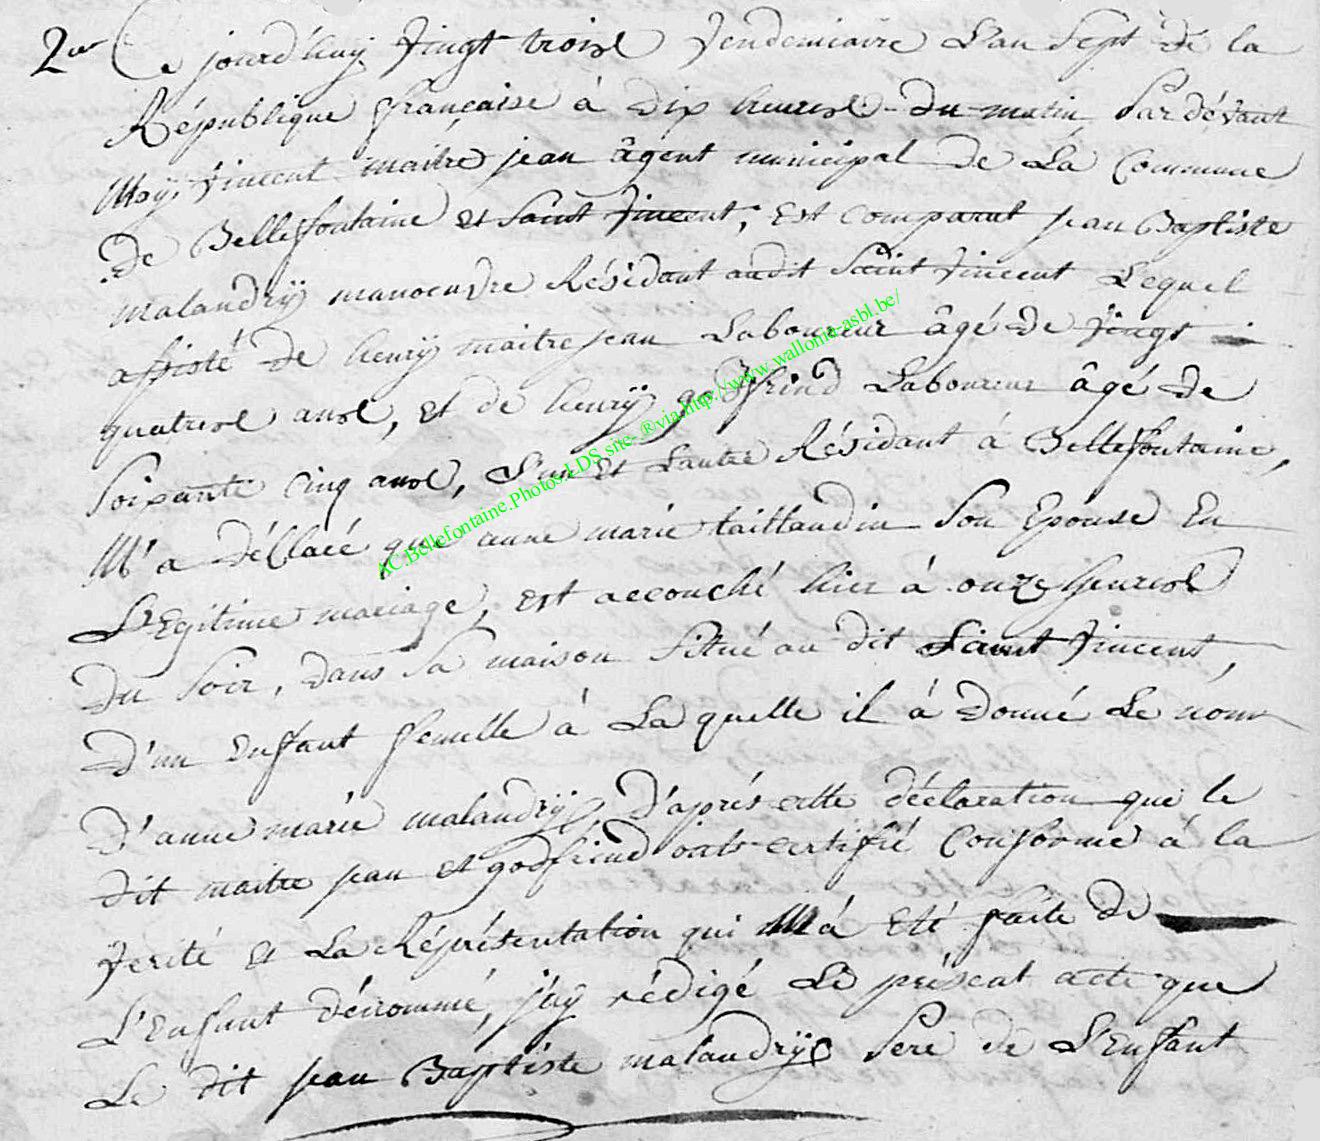 2er Ce jourd'huy vingt troise vendemiaire L'an Sept de la
République française à dix heurese du matin, Par dévant
Moÿ, vincent maitre jean âgent municipal de La Commune
de Bellefontaine et Saint vincent, est comparut jean Baptiste
malandrÿ manoeuvre Résidant audit Saint vincent Lequel
assisté de henrÿ maitrejean Laboureur âgé de vingt
quatrese anse, et de henrÿ godffrind Laboureur âgé de
Soixante Cinq anse, L'un et Lautre Résidant à Bellefontaine,
M'a déllaré que anne marie taillandin Son Epouse En
LEgitime mariage, est accouché hier à onze heurese
du Soir, dans Sa maison Situé au dit Saint vincent,
d'un enfant femélle à La quelle il à donné Le nom
d'anne marie malandrÿ, d'aprés cette déclaration que le
dit maitre jean et godfrind onts certifié Conforme à la
verité et La Réprésentation qui M'á eté faite de
L'Enfant dénommé, j'aÿ rédigé Le présent acte que
Le dit jean Baptiste malandrÿ Pere de L'Enfant
AC.Bellefontaine.Photos.LDS site-®via.http://www.wallonia-asbl.be/